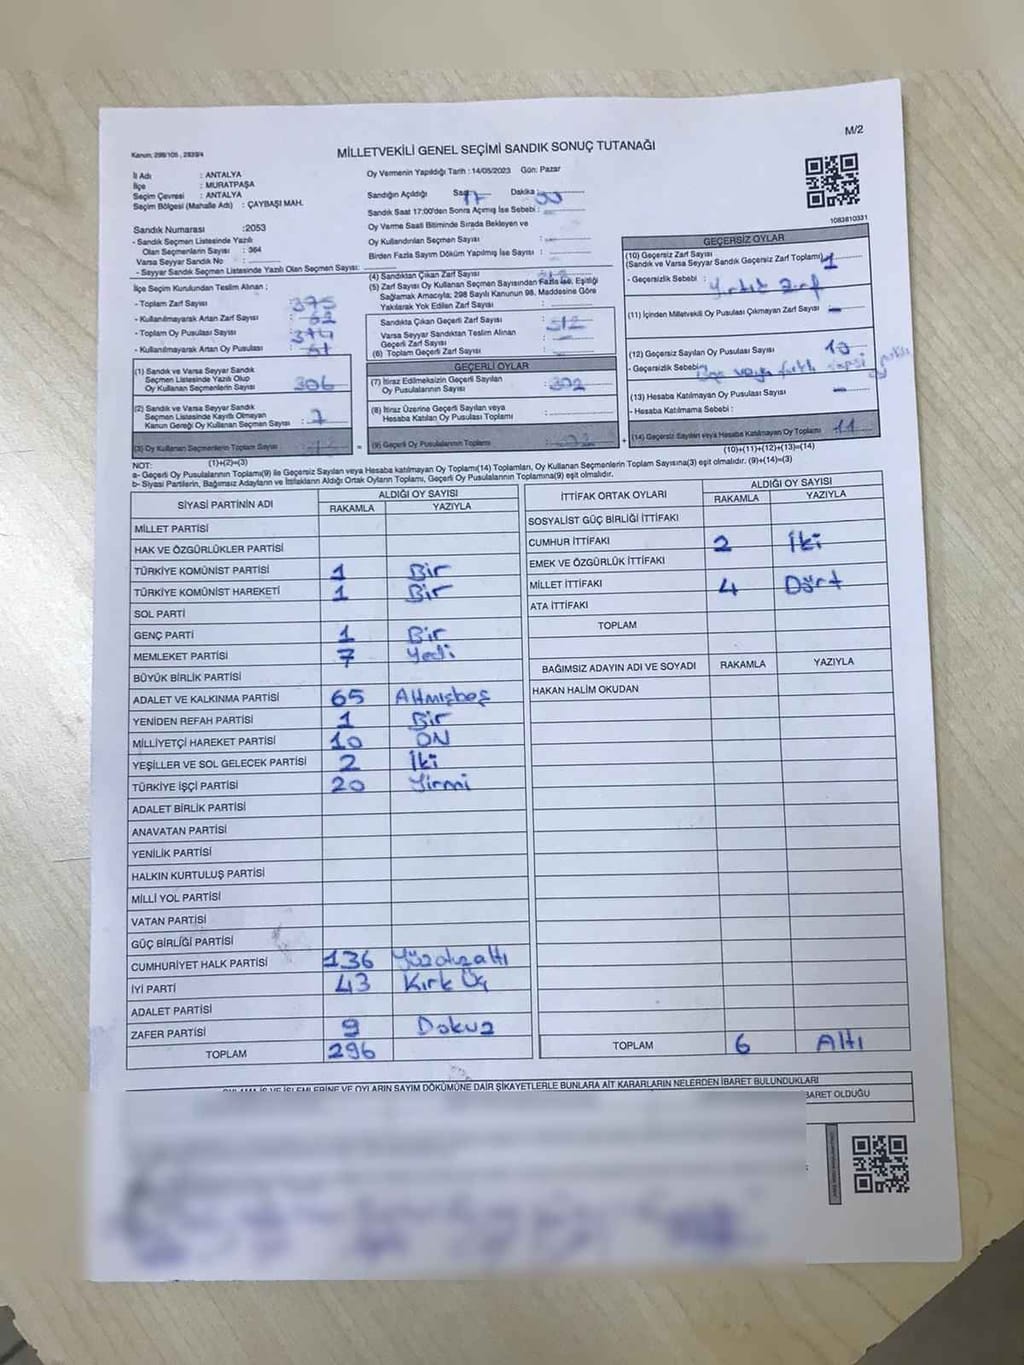 M/2
Kanun: 298/105 , 2839/4
MİLLETVEKİLİ GENEL SEÇİMİ SANDIK SONUÇ TUTANAĞI
İl Adı : ANTALYA
İlçe : MURATPAŞA
Seçim Çevresi : ANTALYA
Seçim Bölgesi (Mahalle Adı) : ÇAYBAŞI MAH.
Oy Vermenin Yapıldığı Tarih : 14/05/2023 Gün: Pazar
Sandığın Açıldığı Saat 17 Dakika
Sandık Saat 17:00'den Sonra Açılmış İse Sebebi :
Oy Verme Saati Bitiminde Sırada Bekleyen ve
Oy Kullandırılan Seçmen Sayısı :
Birden Fazla Sayım Döküm Yapılmış İse Sayısı :
1083810331
Sandık Numarası :2053
- Sandık Seçmen Listesinde Yazılı
Olan Seçmenlerin Sayısı : 364
Varsa Seyyar Sandık No :
- Seyyar Sandık Seçmen Listesinde Yazılı Olan Seçmen Sayısı:
İlçe Seçim Kurulundan Teslim Alınan ;
- Toplam Zarf Sayısı : 375
- Kullanılmayarak Artan Zarf Sayısı : 62
- Toplam Oy Pusulası Sayısı : 374
- Kullanılmayarak Artan Oy Pusulası : 61
(1) Sandık ve Varsa Seyyar Sandık
Seçmen Listesinde Yazılı Olup
Oy Kullanan Seçmenlerin Sayısı : 306
(2) Sandık ve Varsa Seyyar Sandık
Seçmen Listesinde Kayıtlı Olmayan
Kanun Gereği Oy Kullanan Seçmen Sayısı : 7
(3) Oy Kullanan Seçmenlerin Toplam Sayısı
(1)+(2)=(3)
(4) Sandıktan Çıkan Zarf Sayısı
(5) Zarf Sayısı Oy Kullanan Seçmen Sayısından Fazla ise, Eşitliği
Sağlamak Amacıyla, 298 Sayılı Kanunun 98. Maddesine Göre
Yakılarak Yok Edilen Zarf Sayısı :
Sandıkta Çıkan Geçerli Zarf Sayısı : 312
Varsa Seyyar Sandıktan Teslim Alınan
Geçerli Zarf Sayısı :
(6) Toplam Geçerli Zarf Sayısı :
GEÇERLİ OYLAR
(7) İtiraz Edilmeksizin Geçerli Sayılan
Oy Pusulalarının Sayısı : 302
(8) İtiraz Üzerine Geçerli Sayılan veya
Hesaba Katılan Oy Pusulası Toplamı :
= (9) Geçerli Oy Pusulalarının Toplamı : 302 +
GEÇERSİZ OYLAR
(10) Geçersiz Zarf Sayısı
(Sandık ve Varsa Seyyar Sandık Geçersiz Zarf Toplamı) 1
- Geçersizlik Sebebi : Yırtık Zarf
(11) İçinden Milletvekili Oy Pusulası Çıkmayan Zarf Sayısı : -
(12) Geçersiz Sayılan Oy Pusulası Sayısı : 10
- Geçersizlik Sebebi : veya fazla
(13) Hesaba Katılmayan Oy Pusulası Sayısı : -
- Hesaba Katılmama Sebebi :
(14) Geçersiz Sayılan veya Hesaba Katılmayan Oy Toplamı : 11
(10)+(11)+(12)+(13)=(14)
NOT:
a- Geçerli Oy Pusulalarının Toplamı(9) ile Geçersiz Sayılan veya Hesaba katılmayan Oy Toplamı(14) Toplamları, Oy Kullanan Seçmenlerin Toplam Sayısına(3) eşit olmalıdır. (9)+(14)=(3)
b- Siyasi Partilerin, Bağımsız Adayların ve İttifakların Aldığı Ortak Oyların Toplamı, Geçerli Oy Pusulalarının Toplamına(9) eşit olmalıdır.
SİYASİ PARTİNİN ADI ALDIĞI OY SAYISI
RAKAMLA YAZIYLA
MİLLET PARTİSİ
HAK VE ÖZGÜRLÜKLER PARTİSİ
TÜRKİYE KOMÜNİST PARTİSİ 1 Bir
TÜRKİYE KOMÜNİST HAREKETİ 1 Bir
SOL PARTİ
GENÇ PARTİ 1 Bir
MEMLEKET PARTİSİ 7 Yedi
BÜYÜK BİRLİK PARTİSİ
ADALET VE KALKINMA PARTİSİ 65 Altmışbeş
YENİDEN REFAH PARTİSİ 1 Bir
MİLLİYETÇİ HAREKET PARTİSİ 10 ON
YEŞİLLER VE SOL GELECEK PARTİSİ 2 İki
TÜRKİYE İŞÇİ PARTİSİ 20 Yirmi
ADALET BİRLİK PARTİSİ
ANAVATAN PARTİSİ
YENİLİK PARTİSİ
HALKIN KURTULUŞ PARTİSİ
MİLLİ YOL PARTİSİ
VATAN PARTİSİ
GÜÇ BİRLİĞİ PARTİSİ
CUMHURİYET HALK PARTİSİ 136 Yüzotuzaltı
İYİ PARTİ 43 Kırk Üç
ADALET PARTİSİ
ZAFER PARTİSİ 9 Dokuz
TOPLAM 296
İTTİFAK ORTAK OYLARI ALDIĞI OY SAYISI
RAKAMLA YAZIYLA
SOSYALİST GÜÇ BİRLİĞİ İTTİFAKI
CUMHUR İTTİFAKI 2 İki
EMEK VE ÖZGÜRLÜK İTTİFAKI
MİLLET İTTİFAKI 4 Dört
ATA İTTİFAKI
TOPLAM
BAĞIMSIZ ADAYIN ADI VE SOYADI RAKAMLA YAZIYLA
HAKAN HALİM OKUDAN
TOPLAM 6 Altı
OYLAMA İŞ VE İŞLEMLERİNE VE OYLARIN SAYIM DÖKÜMÜNE DAİR ŞİKAYETLERLE BUNLARA AİT KARARLARIN NELERDEN İBARET BULUNDUKLARI
İBARET OLDUĞU